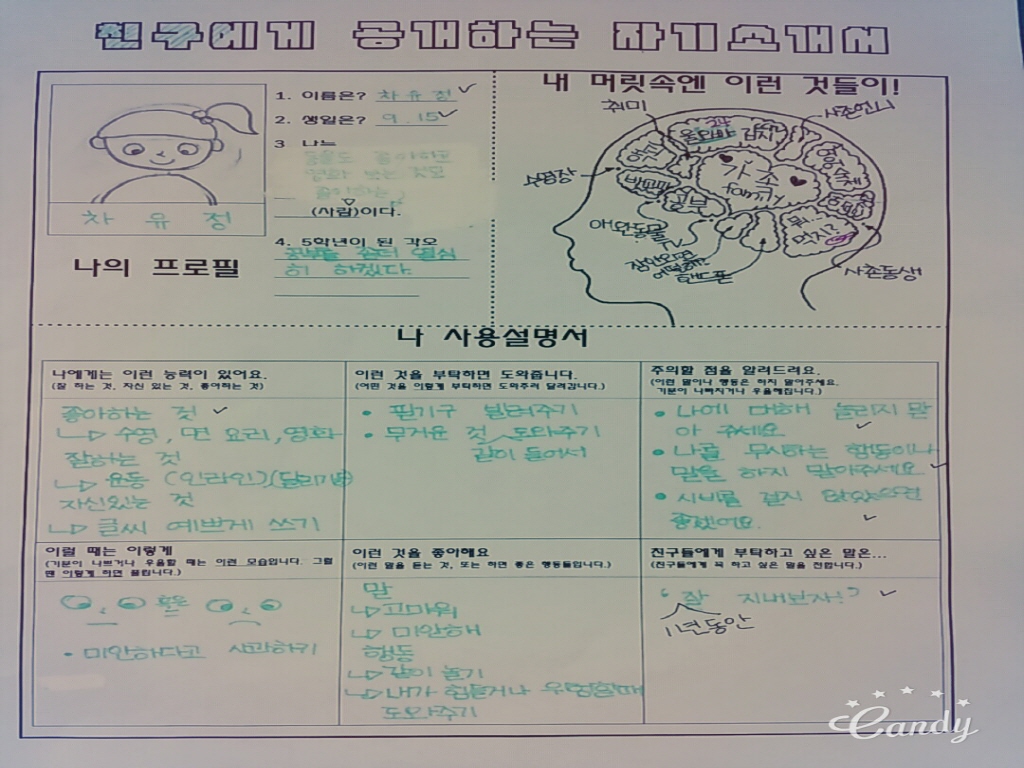 친구에게 공개하는 자기소개서
1. 이름은? 차유정
2. 생일은? 9.15
3 나는
운동도 좋아하고
영화 보는 것도
좋아하는
(사람)이다.
4. 5학년이 된 각오
공부를 좀더 열심
히 하겠다
차 유 정
나의 프로필
내 머릿속엔 이런 것들이!
취미
사촌언니
수영장
가족
family
공부
영어숙제
뭐...
먹지?
애완동물
TV
핸드폰
사촌동생
나 사용설명서
나에게는 이런 능력이 있어요.
(잘 하는 것, 자신 있는 것, 좋아하는 것)
좋아하는 것
수영, 면 요리, 영화
잘하는 것
운동 (인라인)(달리기)
자신있는 것
글씨 예쁘게 쓰기
이런 것을 부탁하면 도와줍니다.
(어떤 것을 이렇게 부탁하면 도와주러 달려갑니다.)
• 필기구 빌려주기
• 무거운 것 도와주기
같이 들어서
주의할 점을 알려드려요.
(이런 말이나 행동은 하지 말아주세요.
기분이 나빠지거나 우울해집니다.)
• 나에 대해 놀리지 말
아 주세요
• 나를 무시하는 행동이나
말을 하지 말아주세요
• 시비를 걸지 않았으면
좋겠어요.
이럴 때는 이렇게
(기분이 나쁘거나 우울할 때는 이런 모습입니다. 그럴
땐 이렇게 하면 풀립니다.)
혹은
• 미안하다고 사과하기
이런 것을 좋아해요
(이런 말을 듣는 것, 또는 하면 좋은 행동들입니다.)
말
고마워
미안해
행동
같이 놀기
내가 힘들거나 우울할때
도와주기
친구들에게 부탁하고 싶은 말은...
(친구들에게 꼭 하고 싶은 말을 전합니다.)
"잘 지내보자!"
1년동안
Candy